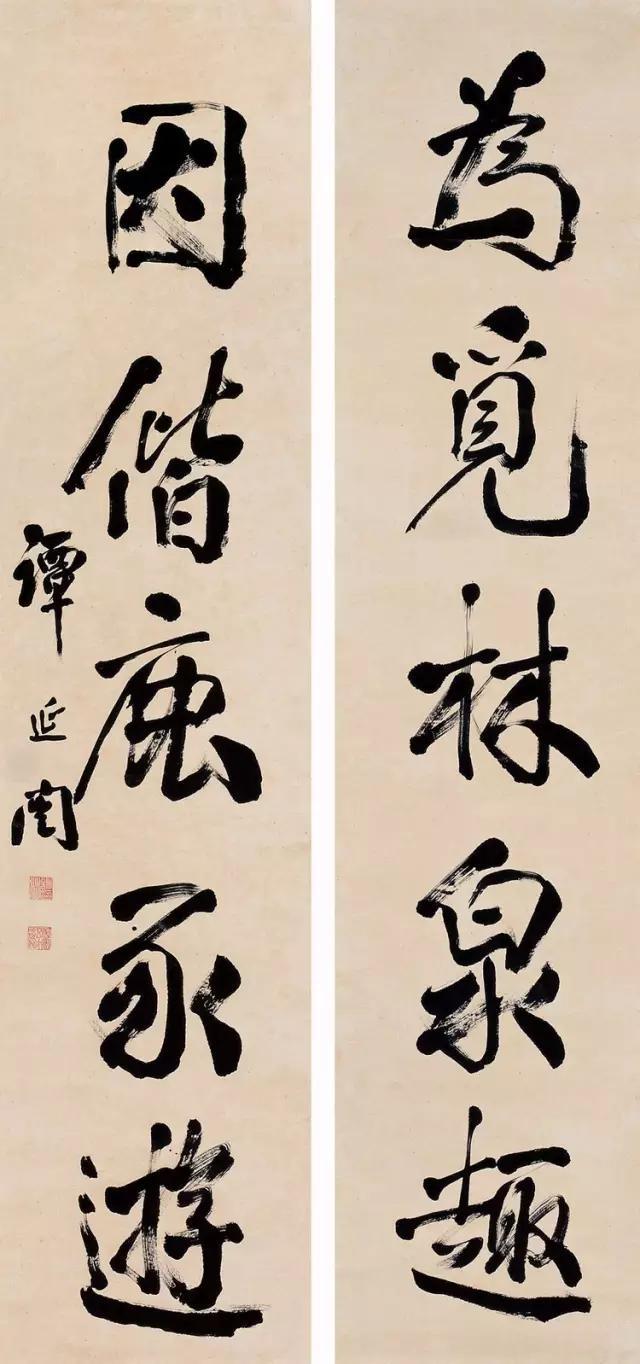 為覓林泉趣
因偕鹿豕遊
譚延闓